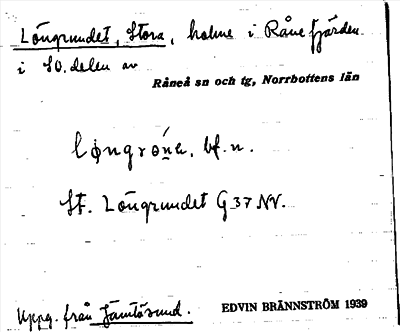 Löngrundet, Stora, holme i Råne fjärden
i SO. delen av
Råneå sn och tg, Norrbottens län
løngrөńe, bf. n.
St. Löngrundet G 37 NV.
Uppg. från Jämtösund. EDVIN BRÄNNSTRÖM 1939